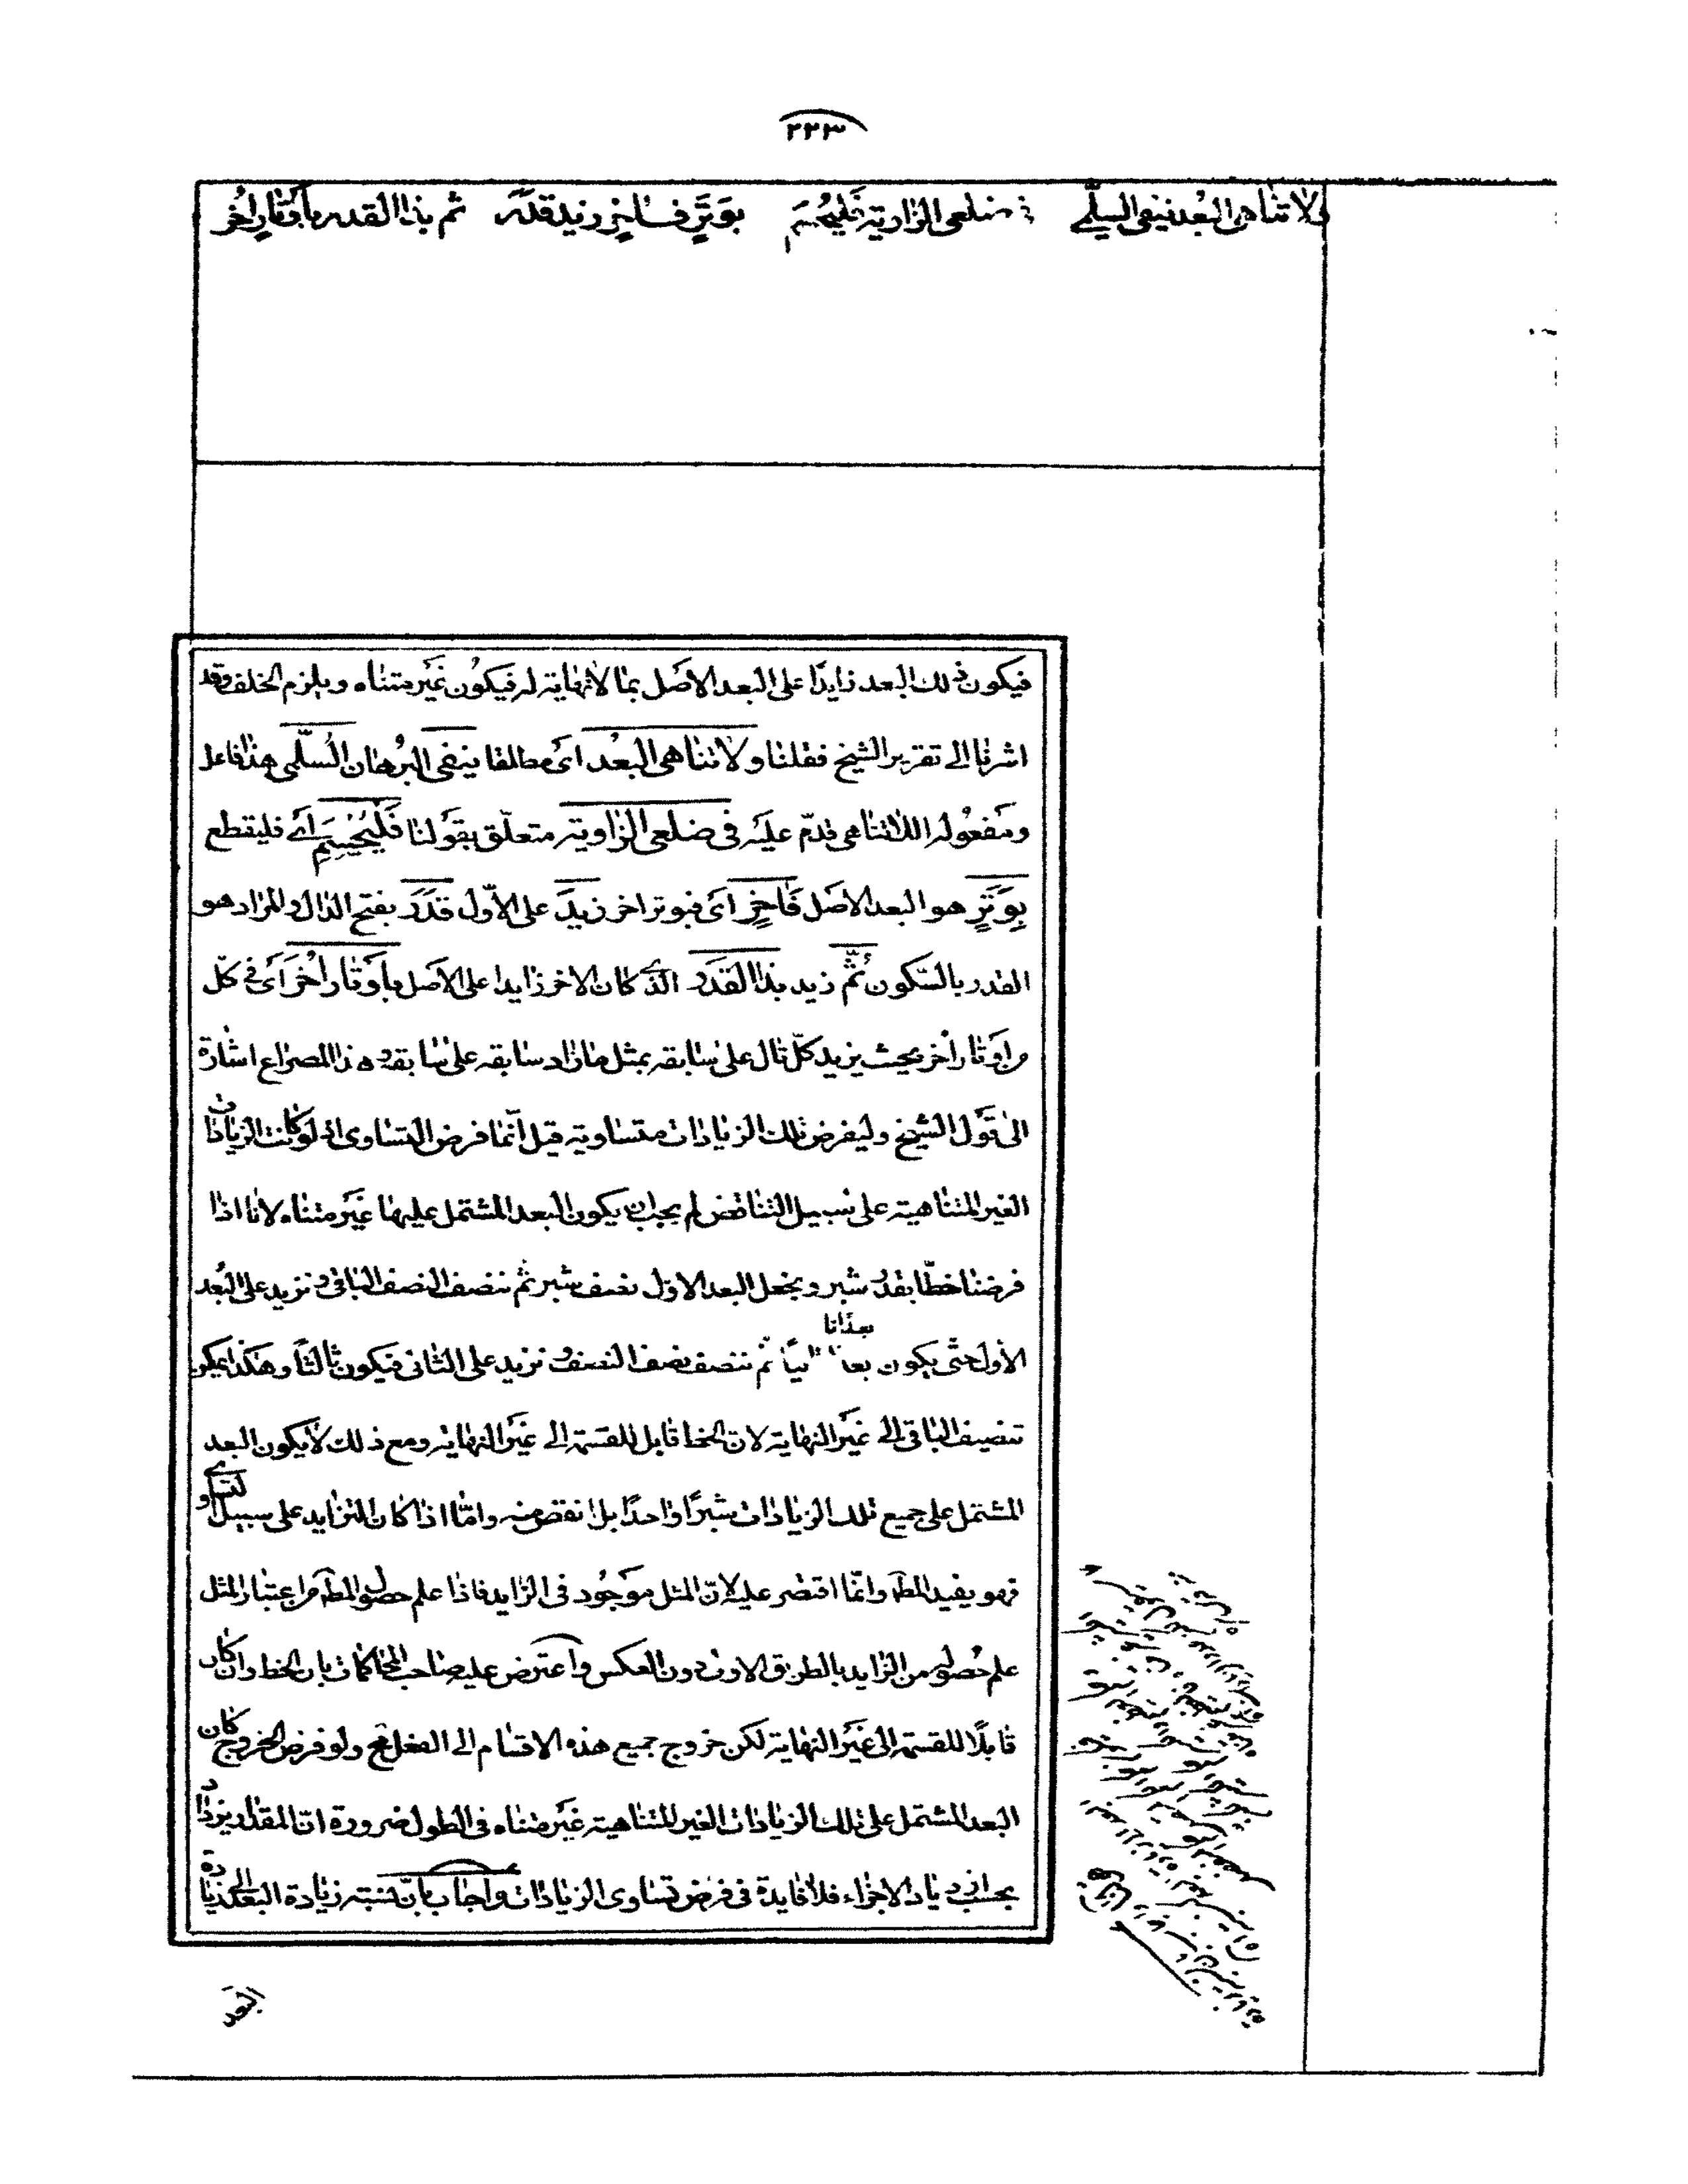 ٢٢٣
لا تناهي البعد ينفي السلّمي في ضلعي الزاوية فليحسم بوتر فآخر زيد قدر ثم بذا القدر بأوتار أخر
فيكون ذلك البعد زايدًا على البعد الاصل بما لا نهاية له فيكون غير متناه ويلزم الخلف وقد
اشرنا الى تقرير الشيخ فقلنا ولا تناهي البعد اى مطلقا ينفى البرهان السّلمى هذا فاعل
ومفعوله اللاتناهى قدّم عليه فى ضلعى الزاوية متعلّق بقولنا فليحسم اى فليقطع
بوتر هو البعد الاصل فآخر اى فبوتر اخر زيد على الاوّل قدر بفتح الدال والمراد هو
القدر بالسّكون ثمّ زيد بذا القدر الذى كان الاخر زايدا على الاصل باوتار اخر اى فى كلّ
من اوتار أخر بحيث يزيد كلّ تال على سابقه بمثل ما زاد سابقه على سابقه وهذا المصراع اشارة
الى قول الشيخ وليفرض تلك الزيادات متساوية قيل انّما فرض التساوى اذ لو كانت الزيادات
الغير المتناهية على سبيل التناقص لم يجب ان يكون البعد المشتمل عليها غير متناه لانا اذا
فرضنا خطّا بقدر شبر ونجعل البعد الاول نصف شبر ثم ننصف النصف الباقى ونزيد على البعد
الاول حتّى يكون بعدا ثانيا ثم ننصف نصف النصف ونزيد على الثانى فيكون ثالثا وهكذا يمكن
تنصيف الباقى الى غير النهاية لان الخط قابل للقسمة الى غير النهاية ومع ذلك لا يكون البعد
المشتمل على جميع تلك الزيادات شبرًا واحدًا بل انقص منه وامّا اذا كان التزايد على سبيل التساوى
فهو يفيد المط وانّما اقتصر عليه لانّ المثل موجود فى الزايد فاذا علم حصول المط من اعتبار المثل
علم حصوله من الزايد بالطريق الاولى دون العكس واعترض عليه صاحب المحاكمات بان الخط وان كان
قابلًا للقسمة الى غير النهاية لكن خروج جميع هذه الاقسام الى الفعل مح ولو فرض الخروج كان
البعد المشتمل على تلك الزيادات الغير المتناهية غير متناه فى الطول ضرورة ان المقدار يزداد
بحسب ازدياد الاجزاء فلا فايدة فى فرض تساوى الزيادات واجاب بانّ نسبة زيادة البعد الى زيادة
البعد